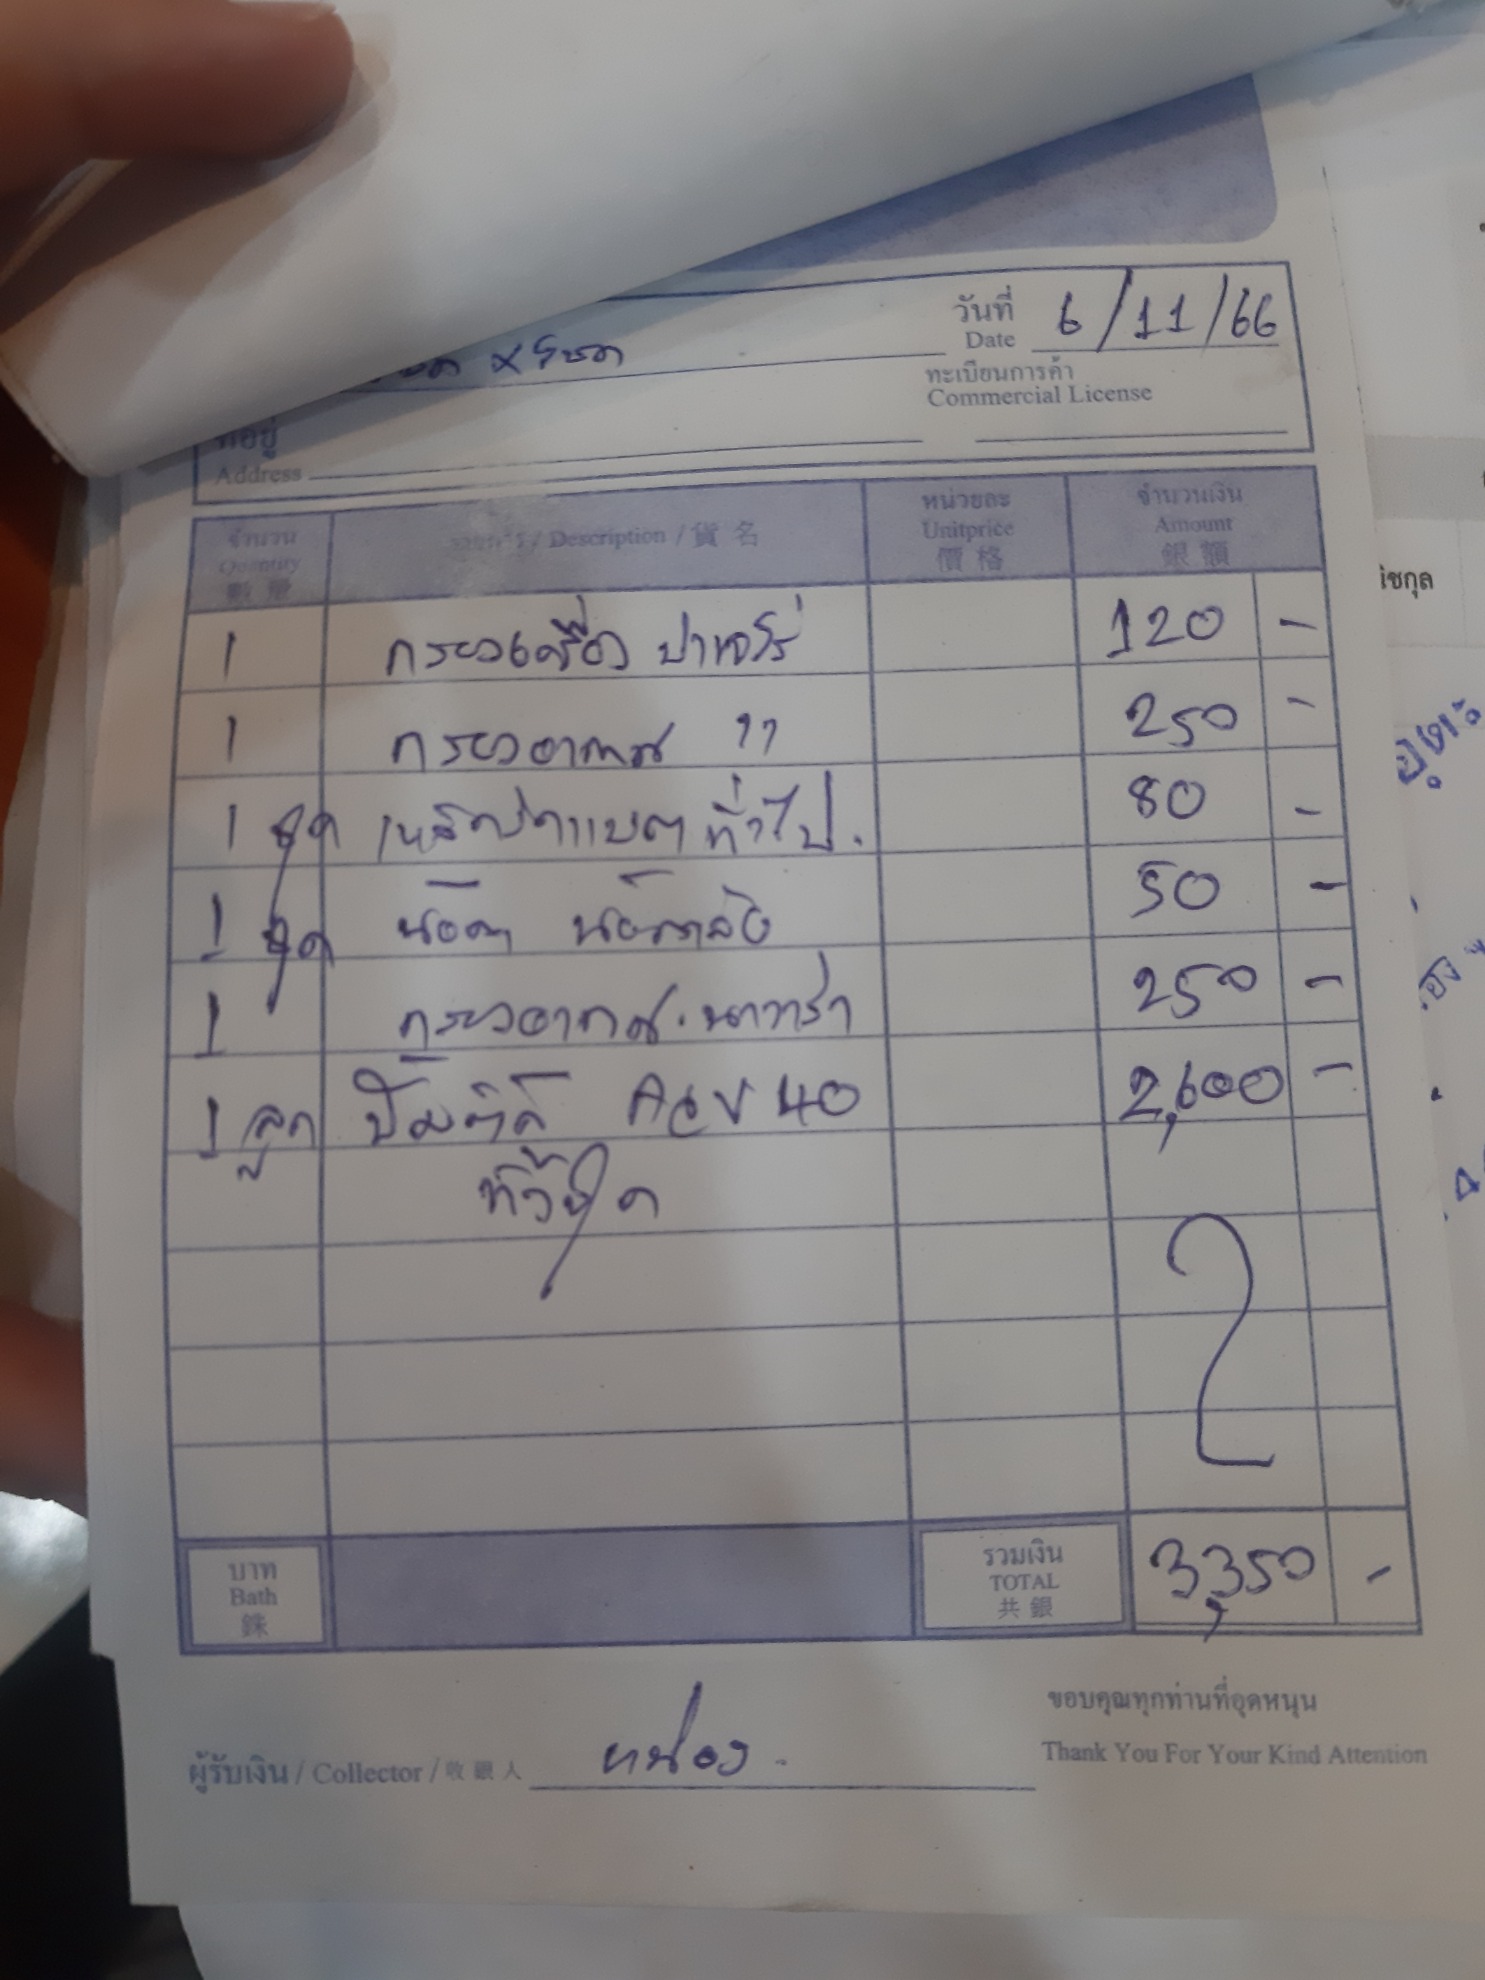 วันที่ 6/11/66
Date
ทะเบียนการค้า
Commercial License
ที่อยู่
Address
จำนวน รายการ / Description / 貨名 หน่วยละ จำนวนเงิน
Quantity Unitprice Amount
數量 價格 銀額
1 กรองเครื่อง ปาเจโร่ 120 -
1 กรองอากาศ " 250 -
1 ชุด เหล็กรัดแบตทั่วไป. 80 -
1 ชุด น๊อต 50 -
1 กรองอากาศ. นาวาร่า 250 -
1 ลูก ปั๊มติ๊ก 40 2,600 -
ทั้งชุด
บาท รวมเงิน 3,350 -
Bath TOTAL
銖 共銀
ขอบคุณทุกท่านที่อุดหนุน
ผู้รับเงิน / Collector / 收銀人 หน่อง. Thank You For Your Kind Attention
ิชกุล